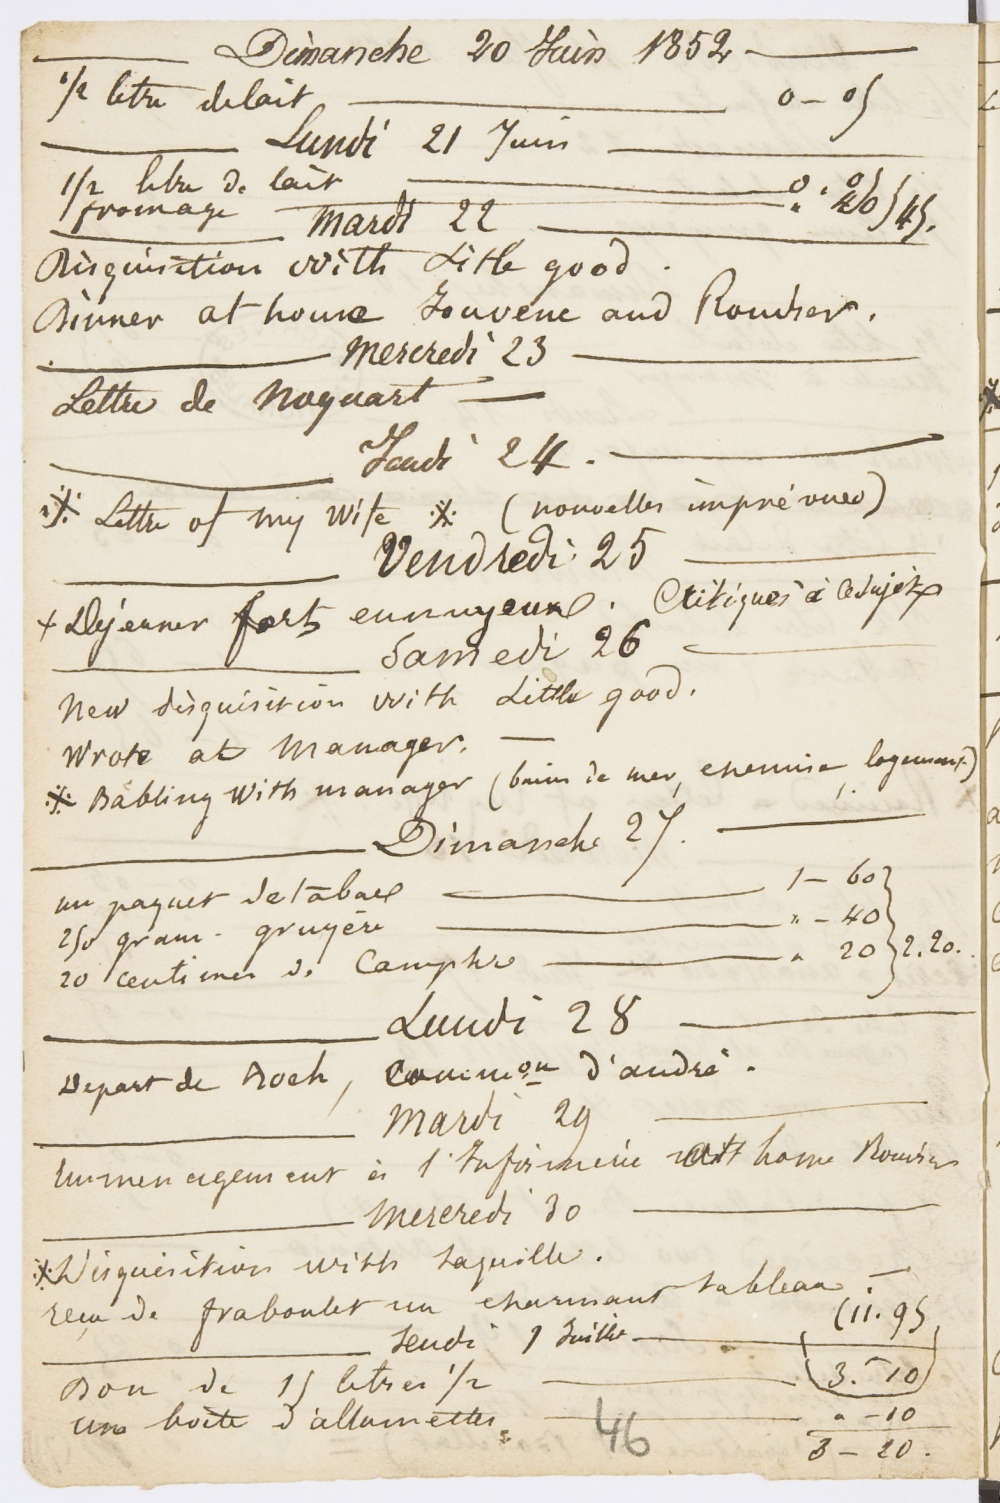 Dimanche 20 Juin 1852
1/2 litre de lait 0 - 05
Lundi 21 Juin
1/2 litre de lait 0 . 05
fromage " 40 } 45.
Mardi 22
Disquisition with Little good .
Dinner at house Jouvene and Roudier .
Mercredi 23
Lettre de Noguart
Jeudi 24 .
Lettre of my Wife (nouvelles imprévues)
Vendredi 25
+ Déjeuner fort ennuyeux . Critiques à ce sujet
Samedi 26
New disquisition with Little good.
Wrote at Manager.
Babling With manager (bains de mer, chemise, logement)
Dimanche 27.
un paquet de tabac 1 - 60
250 gram. gruyère " - 40
20 centimes de Camphre " 20 } 2.20.
Lundi 28
Depart de Roch, Common d'andré .
Mardi 29
Emmenagement à l'Infirmerie at home
Mercredi 30
Disquisition with Laguille .
reçu de fraboulet un charmant tableau .
(11.95
Jeudi 1 Juillet
Bon de 15 litres 1/2 3. - 10
une boîte d'allumettes " - 10
46
3 - 20 .